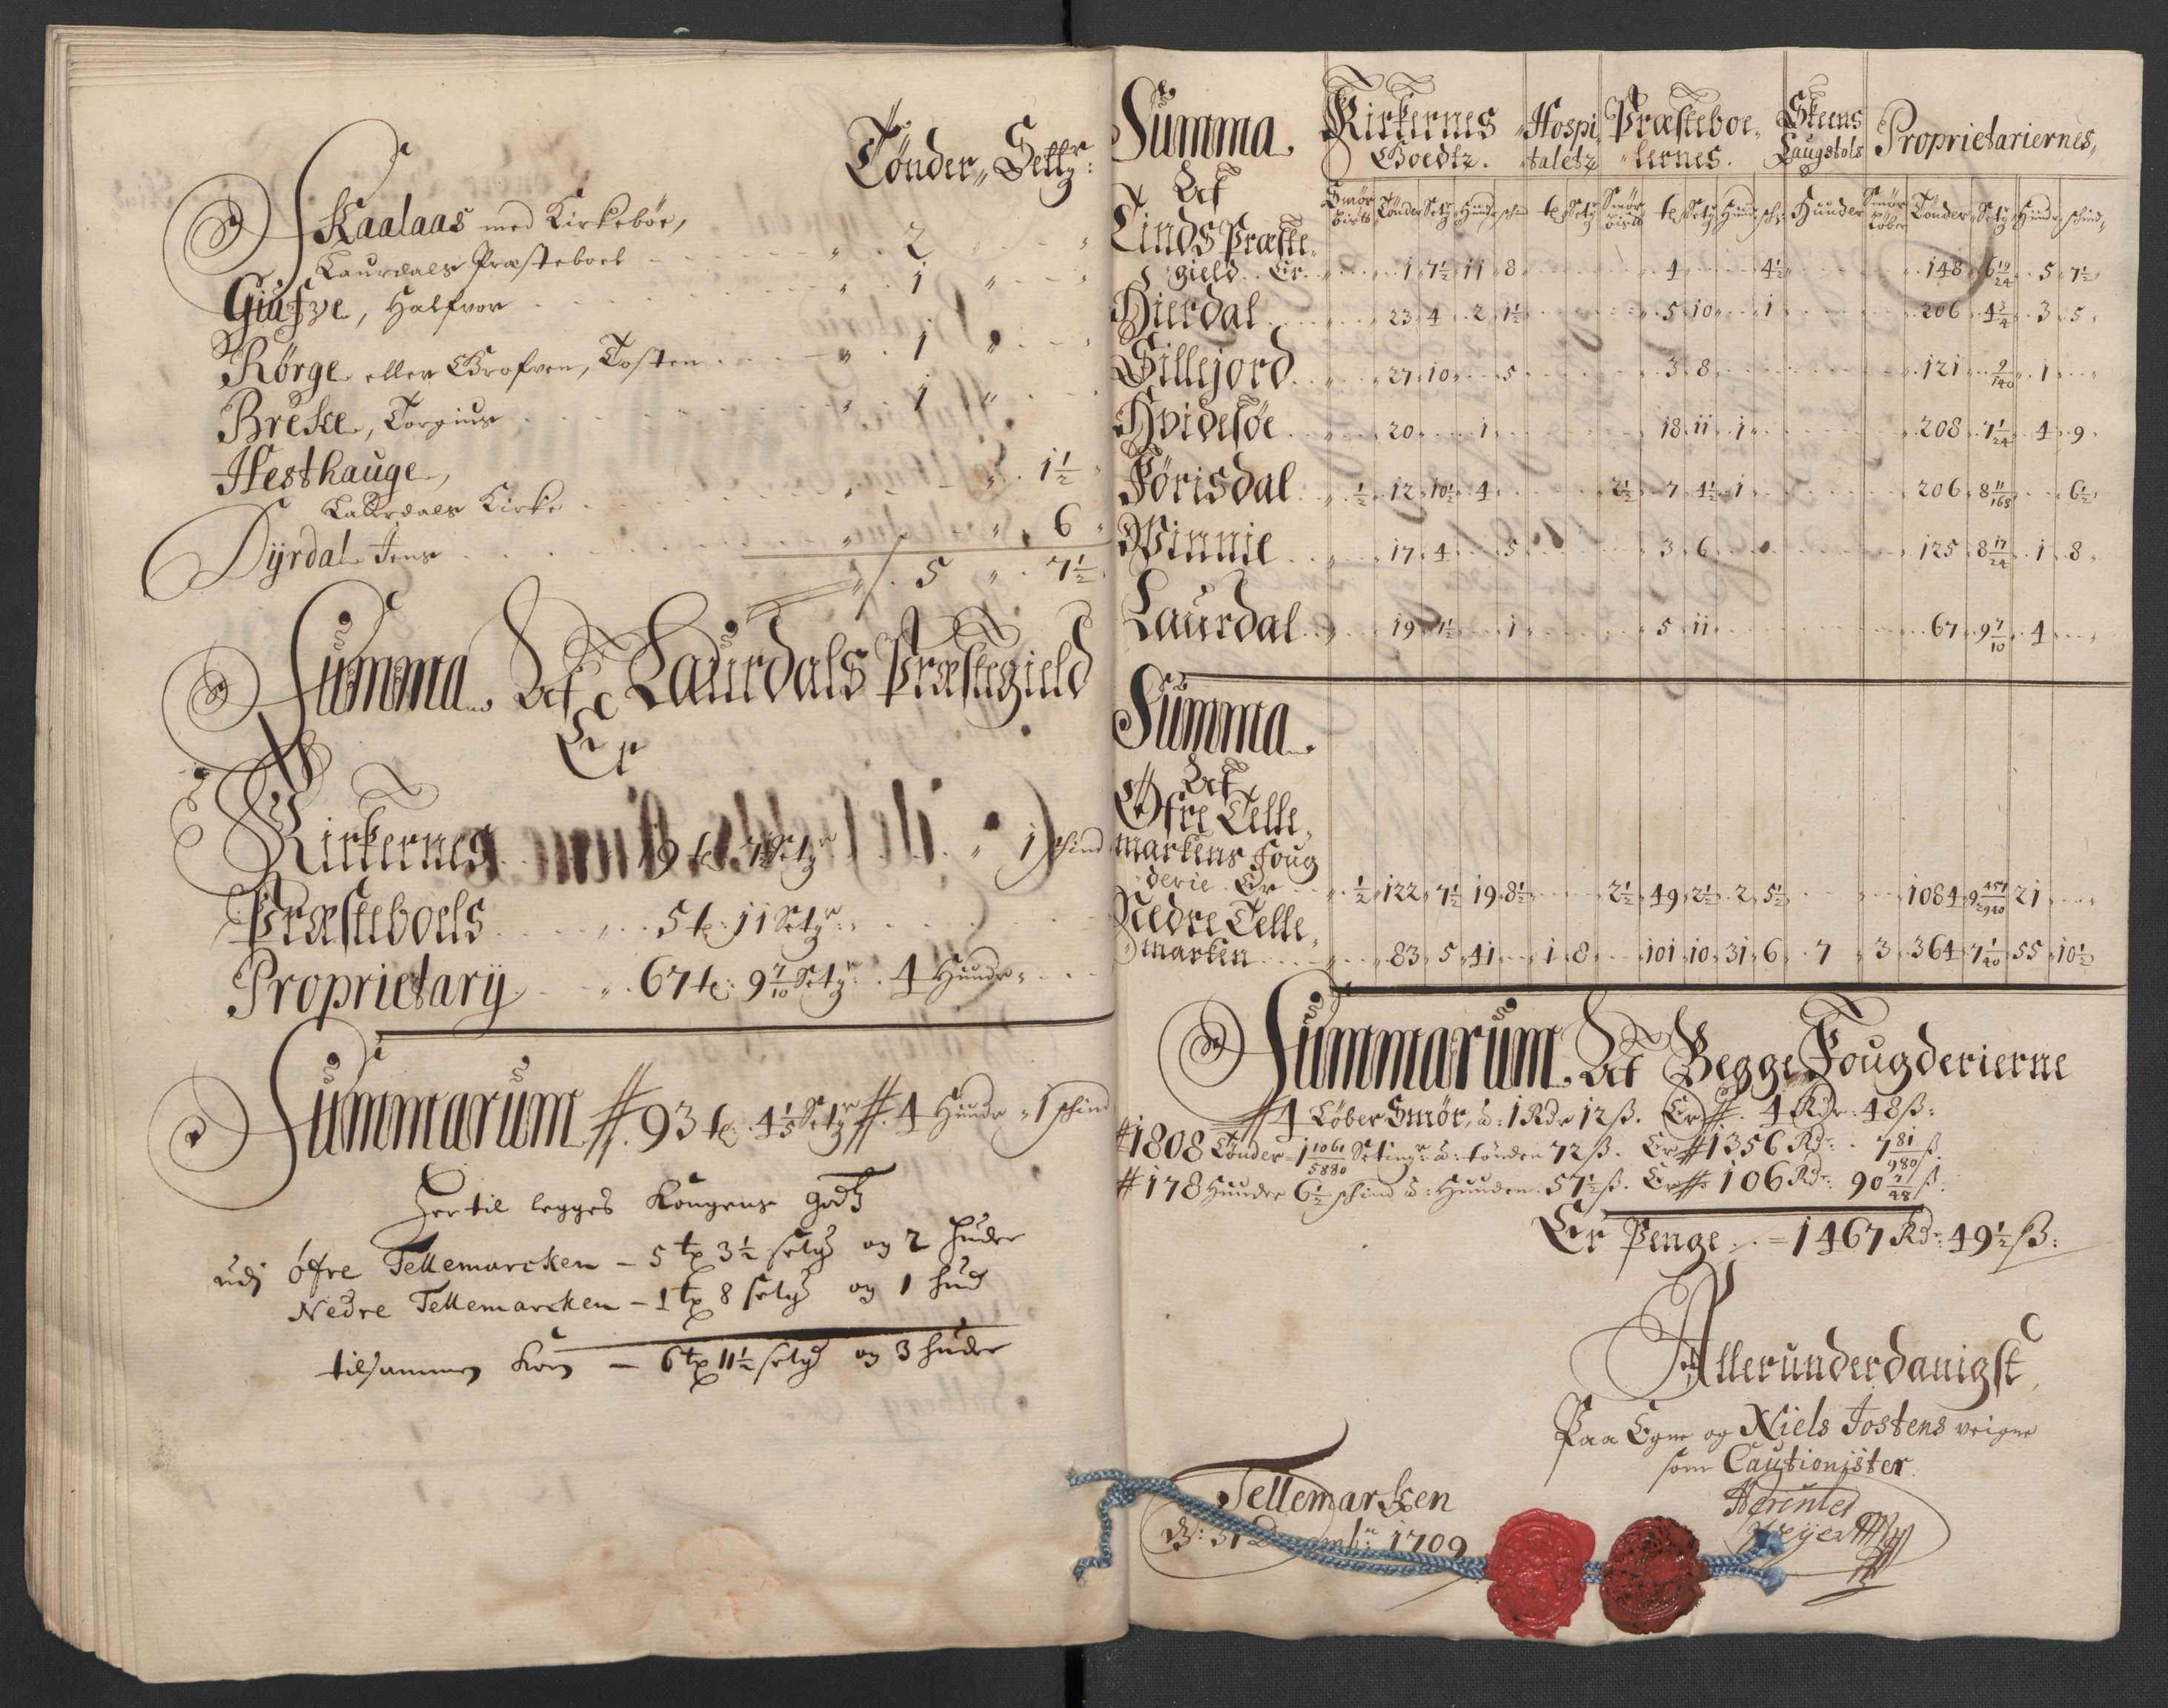 Tönder „ Settgr:
Skaalaas med Kirkeböe,
Laurdals Præsteboel „ 2 „
Giufve, Halfvor „ 1 „
Rörge eller Grofven, Tosten „ 1 „
Breke, Torgius „ 1 „
Hesthauge,
Laurdals Kirke „ „ 1½
Dyrdal Jens „ „ 6
5 „ 7½
Summa Af Laurdals Præstegield
Er
Kirkernes 19 te: 7½ Setgr „ 1 schind
Præsteboels 5 te: 11 Setgr:
Proprietarij 67 te: 9 7/10 Setgr: 4 Hunder
Summarum # 93 te: 4 1/5 Setgr # 4 Hunder 1 schind
Her til legges Kongens godz
udj öfre Tellemarcken – 5 tr 3½ setgr og 2 huder
Nedre Tellemarcken – 1 tr 8 setgr og 1 hud
tilsammen Korn – 6 tr 11½ setgr og 3 huder
Summa Kirkernes Hospi Præsteboe Skeens Proprietariernes
Goedtz. taletz lernes. Laugstols
Af
Smör Tönder Setgr Hunder schind te Setgr Smör te Setgr Hund sch: Hunder Smör Löber Tönder Setgr Hunder schind
Tinds Præste
gield Er 1 7½ 11 8 4 4½ 148 6 19/24 5 7½
Hierdal 23 4 2 1½ 5 10 1 206 4¾ 3 5
Sillejord 27 10 5 3 8 121 9/140 1
Hvidesöe 20 1 18 11 1 208 7 1/24 4 9
Förisdal ½ 12 10½ 4 2½ 7 4½ 1 206 8 11/168 6½
Winnie 17 4 5 3 6 125 8 17/24 1 8
Laurdal 19 7½ 1 5 11 67 9 7/10 4
Summa
Af
Öfre Telle
markens Foug
derie Er ½ 122 7½ 19 8½ 2½ 49 2½ 2 5½ 1084 9 21
Nedre Telle
marken 83 5 41 1 8 101 10 31 6 7 3 364 7 1/40 55 10½
Summarum Af Begge Fougderierne
# 4 Löber Smör, à: 1 Rdr 12 ß. Er # 4 Rdr: 48 ß:
# 1808 Tönder 1 1061/5880 Setingr: à: tönden 72 ß. Er # 1356 Rdr: 7 81/980 ß.
# 178 Hunder 6½ schind à: Hunden 57½ ß. Er # 106 Rdr: 90 7/48 ß.
Er Penge – 1467 Rdr: 49½ ß:
Allerunderdanigst
Paa Egne og Niels Jostens veigne
som Cautionister.
Tellemarken
D: 31 Decembr: 1709